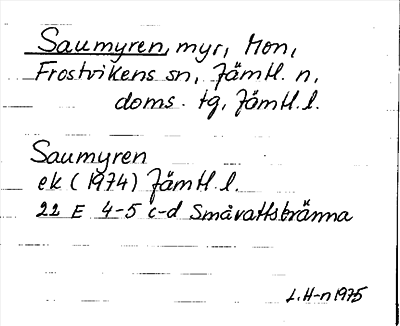 Saumyren, myr, Mon,
Frostvikens sn, Jämtl. n,
doms. tg, Jämtl. l.
Saumyren
ek (1974) Jämtl. l.
22 E 4-5 c-d Småvattsbränna
L. H-n 1975